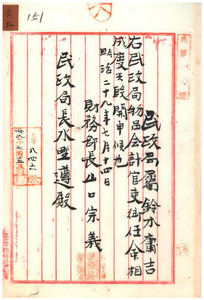 151
民政局属鈴木吉
右民政局物品会計官吏任命相
成度此段申候也
明治二十九年七月十四日
財務部長山口宗義
民政局長水野遵殿